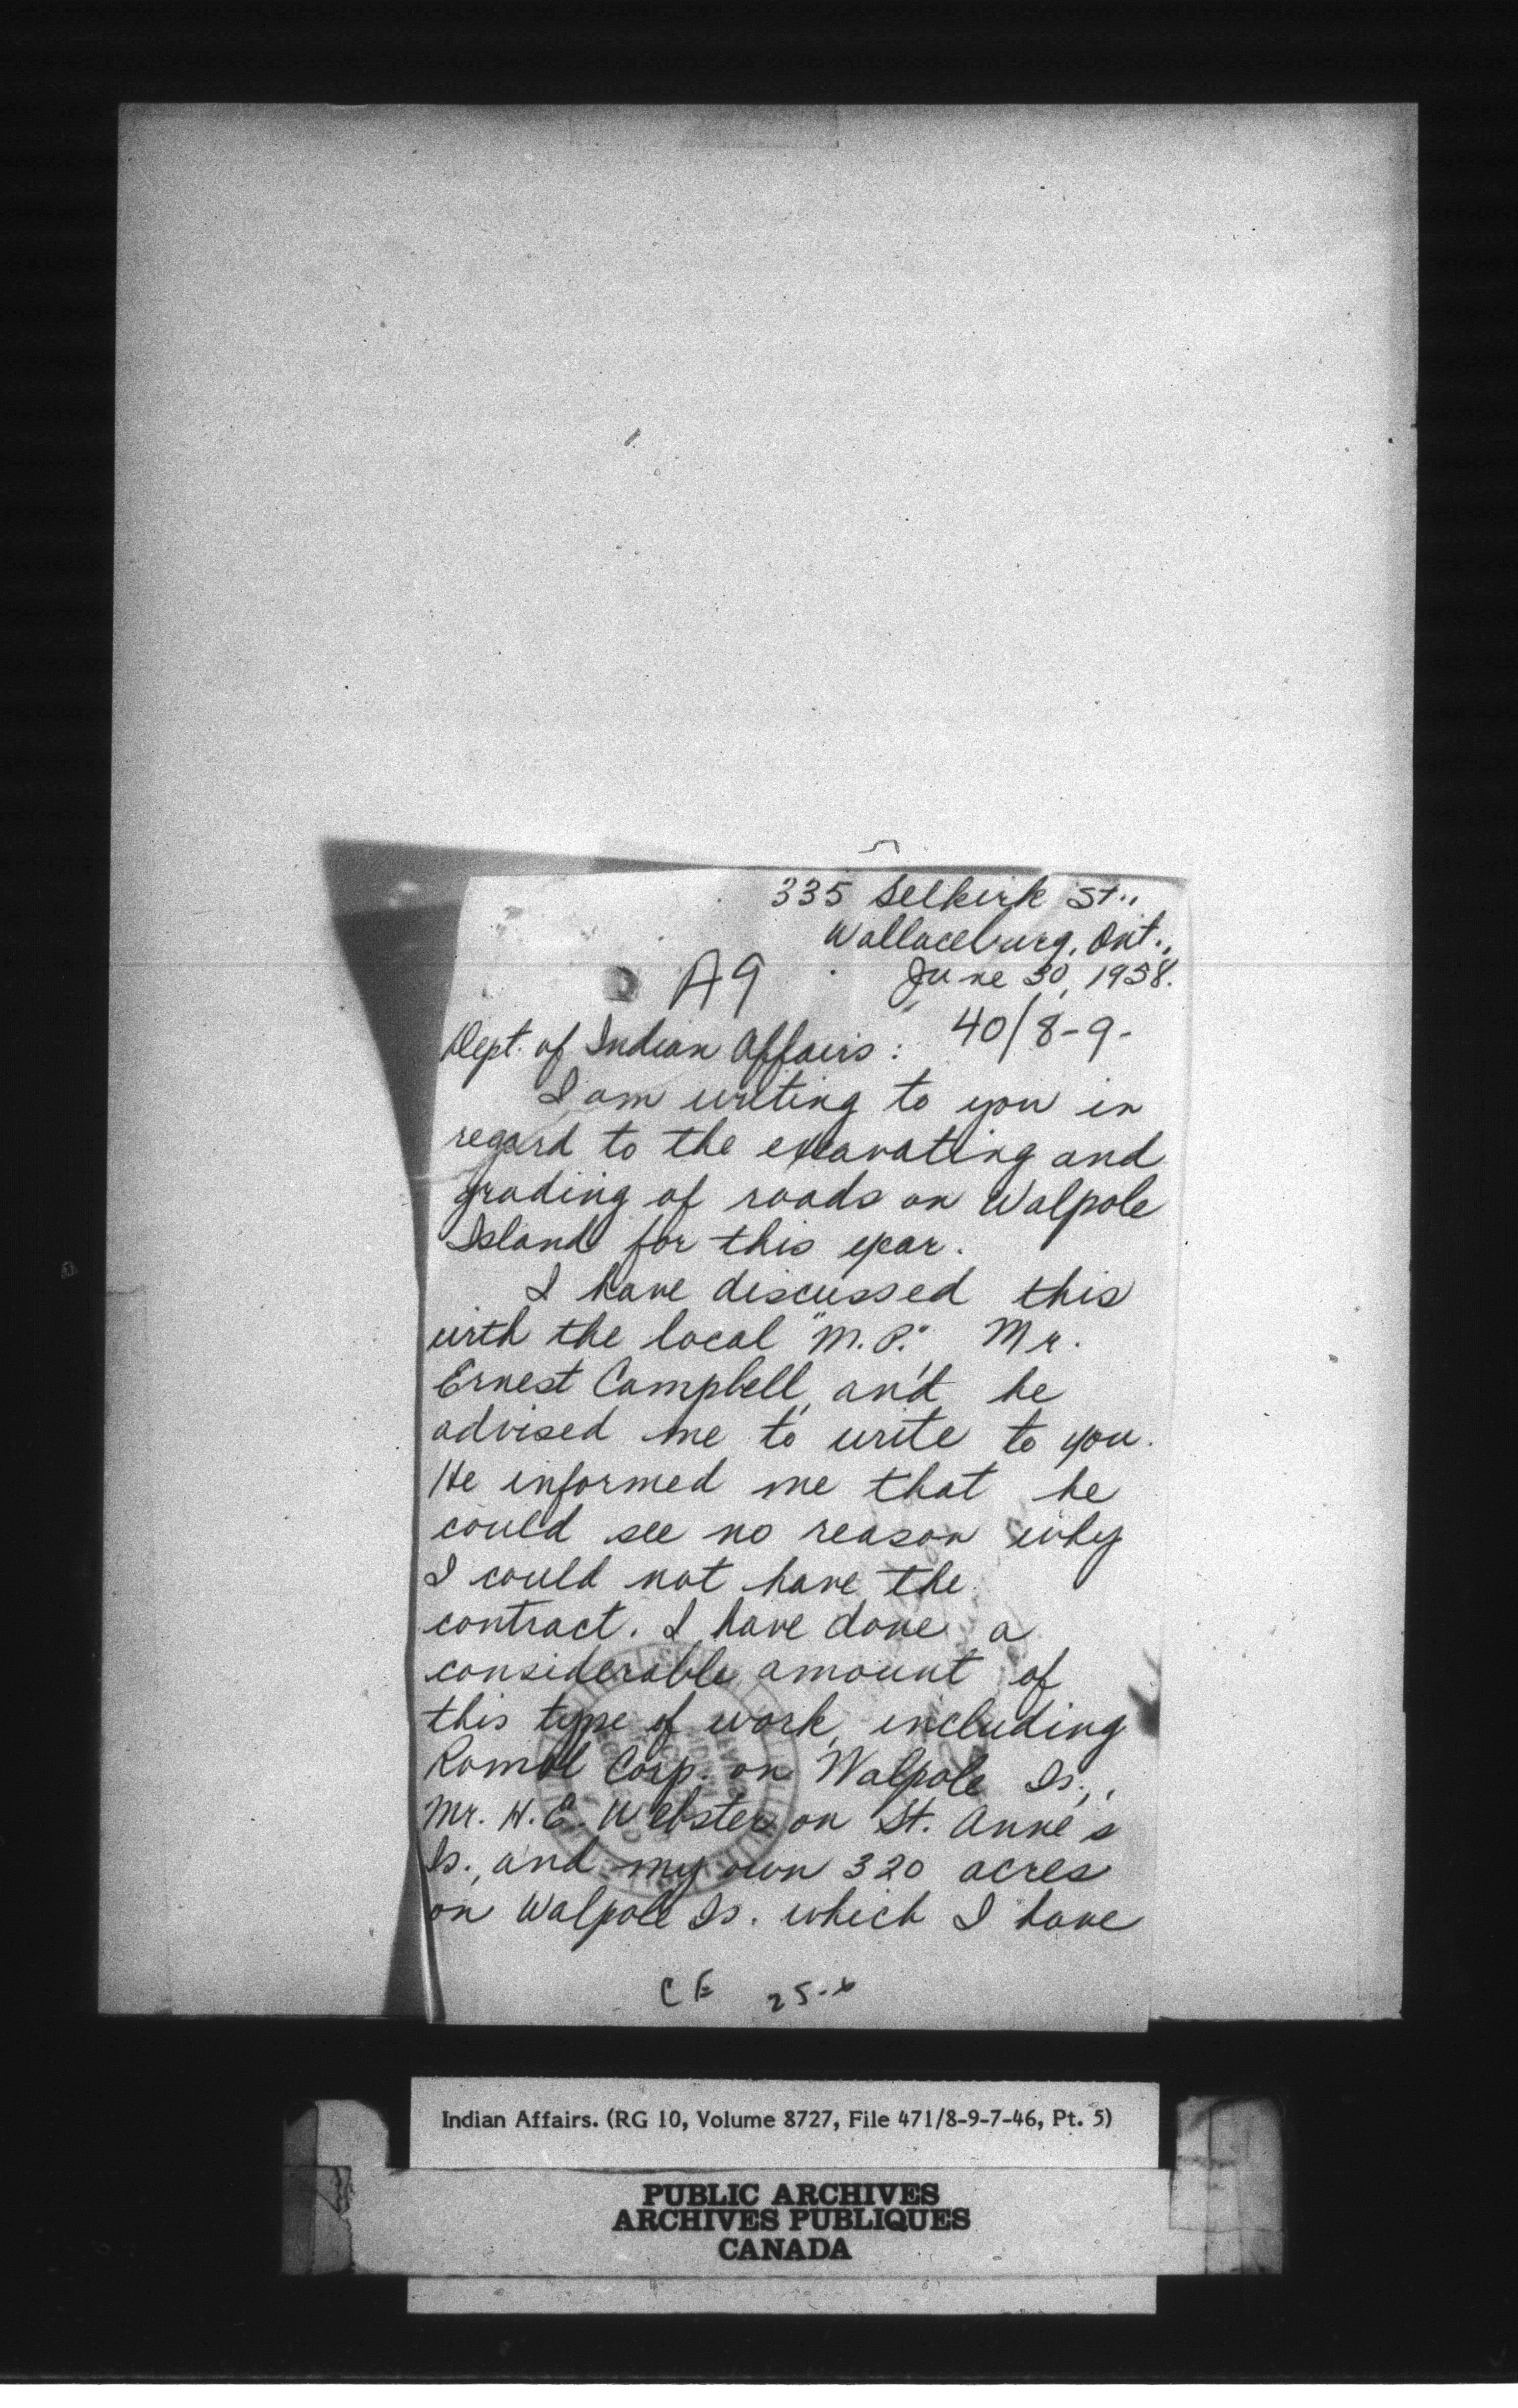 335 Selkirk St.,
Wallaceburg, Ont.,
A9
June 30, 1958.
40/8-9-
Dept. of Indian Affairs:
I am writing to you in
regard to the excavating and
grading of roads on Walpole
Island for this year.
I have discussed this
with the local "M.P.", Mr.
Ernest Campbell, and he
advised me to write to you.
He informed me that he
could see no reason why
I could not have the
contract. I have done a
considerable amount of
this type of work, including
Romol Corp. on Walpole Is.,
Mr. H.E. Webster on St. Anne's
Is., and my own 320 acres
on Walpole Is. which I have
CE
Indian Affairs. (RG 10, Volume 8727, File 471/8-9-7-46, Pt. 5)
PUBLIC ARCHIVES
ARCHIVES PUBLIQUES
CANADA